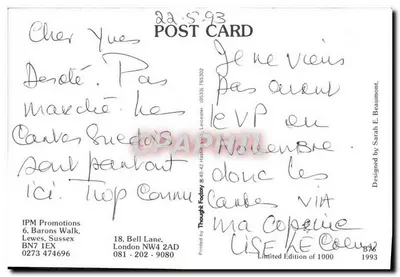 22-5-93
POST CARD
Cher Yves
Désolé. Pas
marché. Les
Cartes Suédois
sont partout
ici. Trop connu
Je ne viens
pas avant
le VP en
Novembre.
donc les
cartes VIA
ma copine
LISE LE Coeur
IPM Promotions
6, Barons Walk,
Lewes, Sussex
BN7 1EX
0273 474696
18, Bell Lane,
London NW4 2AD
081 - 202 - 9080
Printed by Thought Factory
Leicester (0533) 765302
Designed by Sarah E. Beaumont.
Limited Edition of 1000
B76
1993